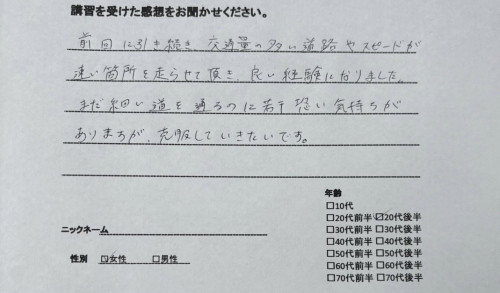 講習を受けた感想をお聞かせください。
前回に引き続き、交通量の多い道路やスピードが
速い箇所を走らせて頂き、良い経験になりました。
まだ細い道を通るのに若干恐い気持ちが
ありますが、克服していきたいです。
年齢
□10代
□20代前半 ☑20代後半
□30代前半 □30代後半
ニックネーム
□40代前半 □40代後半
□50代前半 □50代後半
性別 ☑女性 □男性
□60代前半 □60代後半
□70代前半 □70代後半